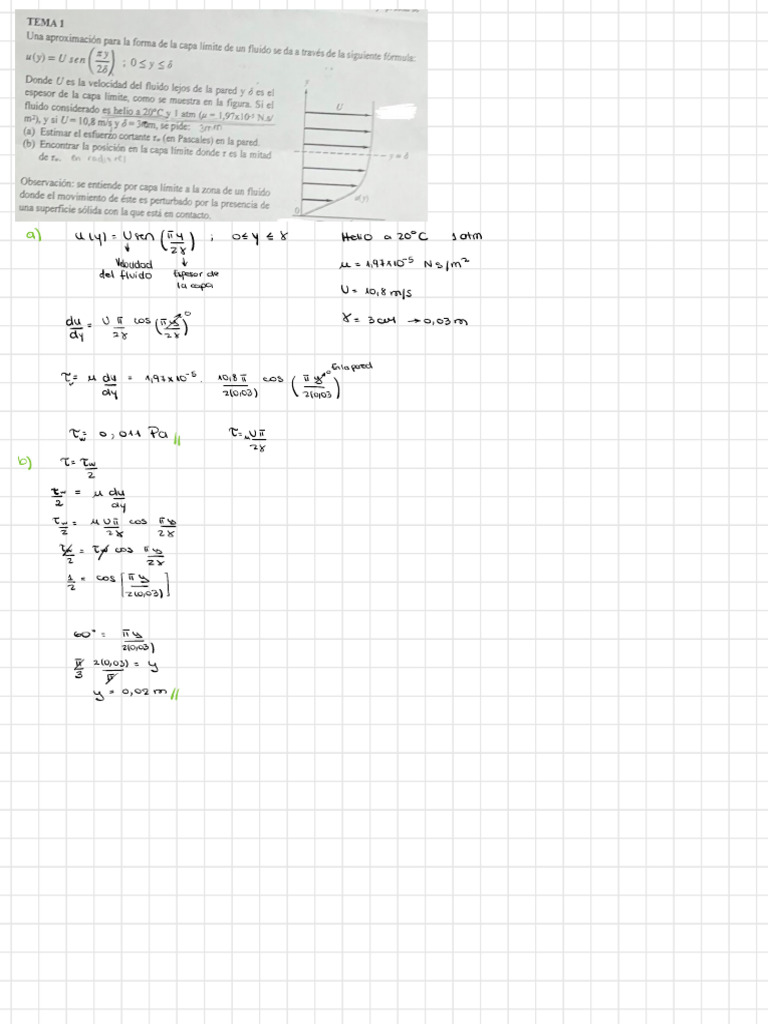 TEMA 1
Una aproximación para la forma de la capa límite de un fluido se da a través de la siguiente fórmula:
u(y) = U sen(πy/2δ) ; 0 ≤ y ≤ δ
Donde U es la velocidad del fluido lejos de la pared y δ es el
espesor de la capa límite, como se muestra en la figura. Si el
fluido considerado es helio a 20°C y 1 atm (μ = 1,97x10⁻⁵ N.s/
m²), y si U = 10,8 m/s y δ = 3 m, se pide: 3mm
(a) Estimar el esfuerzo cortante τw (en Pascales) en la pared.
(b) Encontrar la posición en la capa límite donde τ es la mitad
de τw.
Observación: se entiende por capa límite a la zona de un fluido
donde el movimiento de éste es perturbado por la presencia de
una superficie sólida con la que está en contacto.
y
U
y = δ
u(y)
0
a) u(y) = U sen (πy/2γ) ; 0 ≤ y ≤ γ
Velocidad del fluido
Espesor de la capa
Helio a 20°C 1 atm
μ = 1,97x10⁻⁵ Ns/m²
U = 10,8 m/s
γ = 3cm → 0,03 m
du/dy = U π/2γ cos (πy/2γ) 0
τw = μ du/dy = 1,97x10⁻⁵ . 10,8π/2(0,03) cos (πy/2(0,03)) 0 En la pared
τw = 0,011 Pa //
τ = μUπ/2γ
b) τ = τw/2
τw/2 = μ du/dy
τw/2 = μ Uπ/2γ cos πy/2γ
τw/2 = τw cos πy/2γ
1/2 = cos [πy/2(0,03)]
60° = πy/2(0,03)
π/3 2(0,03)/π = y
y = 0,02 m //